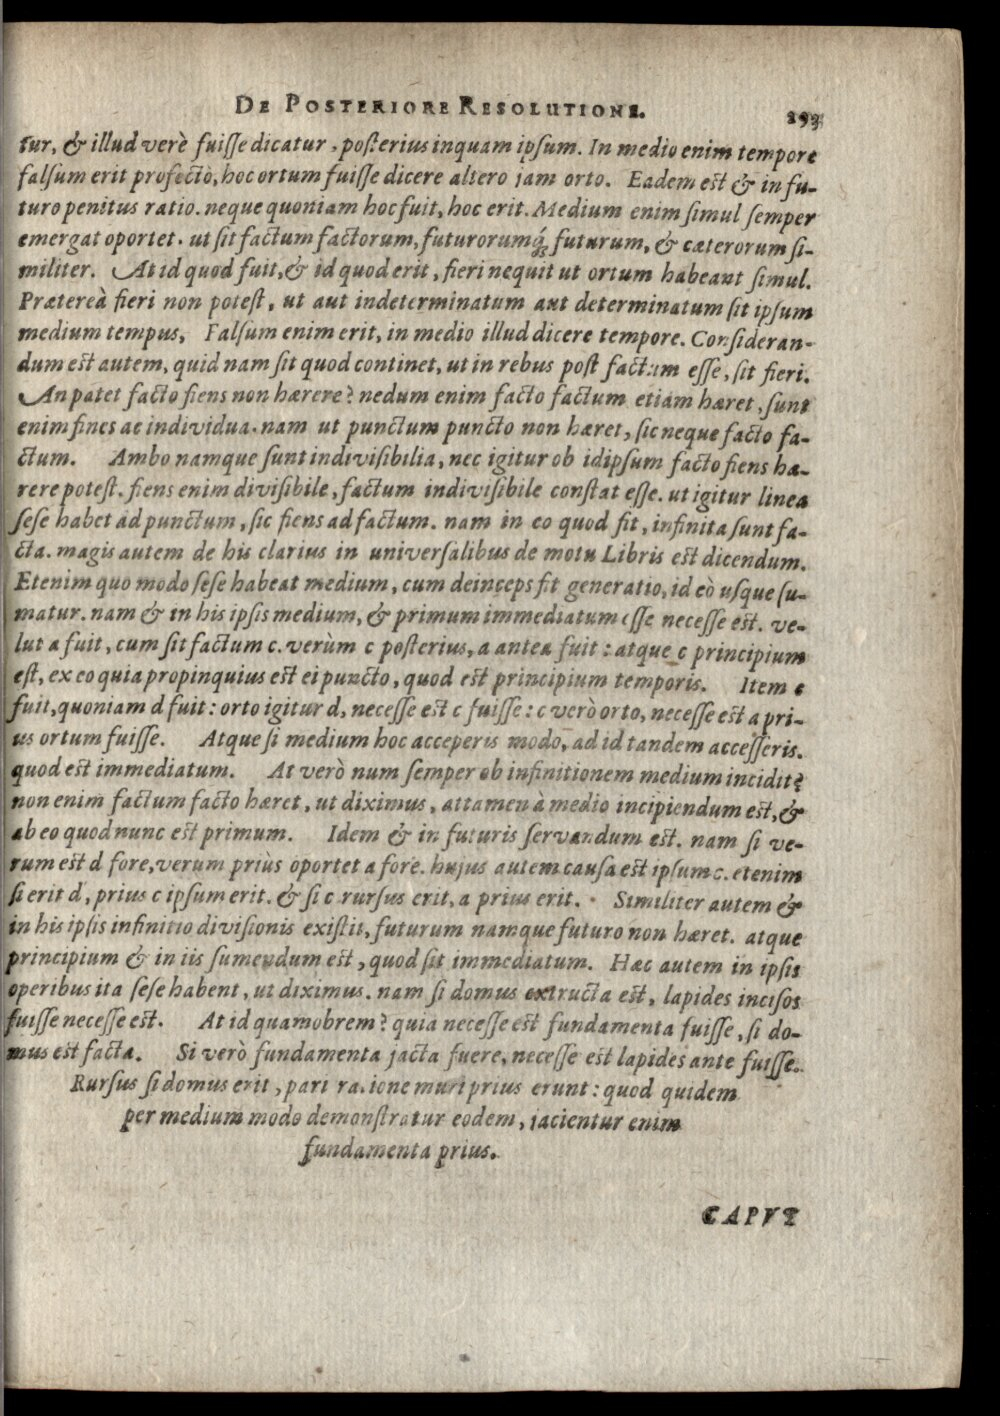 DE POSTERIORE RESOLUTIONE. 293
tur, & illud verè fuiſſe dicatur, poſterius inquam ipſum. In medio enim tempore
falſum erit profectò, hoc ortum fuiſſe dicere altero jam orto. Eadem eſt & in fu-
turo penitus ratio. neque quoniam hoc fuit, hoc erit. Medium enim ſimul ſemper
emergat oportet. ut ſit factum factorum, futurorumq́; futurum, & cæterorum ſi-
militer. At id quod fuit, & id quod erit, fieri nequit ut ortum habeant ſimul.
Prætereà fieri non poteſt, ut aut indeterminatum aut determinatum ſit ipſum
medium tempus, Falſum enim erit, in medio illud dicere tempore. Conſideran-
dum eſt autem, quid nam ſit quod continet, ut in rebus poſt factum eſſe, ſit fieri.
An patet facto fiens non hærere? nedum enim facto factum etiam hæret, ſunt
enim fines ac individua. nam ut punctum puncto non hæret, ſic neque facto fa-
ctum. Ambo namque ſunt indiviſibilia, nec igitur ob idipſum facto fiens hæ-
rere poteſt. fiens enim diviſibile, factum indiviſibile conſtat eſſe. ut igitur linea
ſeſe habet ad punctum, ſic fiens ad factum. nam in eo quod fit, infinita ſunt fa-
cta. magis autem de his clarius in univerſalibus de motu Libris eſt dicendum.
Etenim quo modo ſeſe habeat medium, cum deinceps fit generatio, id eò uſque ſu-
matur. nam & in his ipſis medium, & primum immediatum eſſe neceſſe eſt. ve-
lut a fuit, cum ſit factum c. verùm c poſterius, a antea fuit: atque c principium
eſt, ex eo quia propinquius eſt ei puncto, quod eſt principium temporis. Item c
fuit, quoniam d fuit: orto igitur d, neceſſe eſt c fuiſſe: c verò orto, neceſſe eſt a pri-
us ortum fuiſſe. Atque ſi medium hoc acceperis modo, ad id tandem acceſſeris.
quod eſt immediatum. At verò num ſemper ob infinitionem medium incidit?
non enim factum facto hæret, ut diximus, attamen à medio incipiendum eſt, &
ab eo quod nunc eſt primum. Idem & in futuris ſervandum eſt. nam ſi ve-
rum eſt d fore, verum priùs oportet a fore. hujus autem cauſa eſt ipſum c. etenim
ſi erit d, prius c ipſum erit. & ſi c rurſus erit, a prius erit. Similiter autem &
in his ipſis infinitio diviſionis exiſtit, futurum namque futuro non hæret. atque
principium & in iis ſumendum eſt, quod ſit immediatum. Hæc autem in ipſis
operibus ita ſeſe habent, ut diximus. nam ſi domus extructa eſt, lapides inciſos
fuiſſe neceſſe eſt. At id quamobrem? quia neceſſe eſt fundamenta fuiſſe, ſi do-
mus eſt facta. Si verò fundamenta jacta fuere, neceſſe eſt lapides ante fuiſſe.
Rurſus ſi domus erit, pari ratione muri prius erunt: quod quidem
per medium modo demonſtratur eodem, jacientur enim
fundamenta prius.
CAPUT